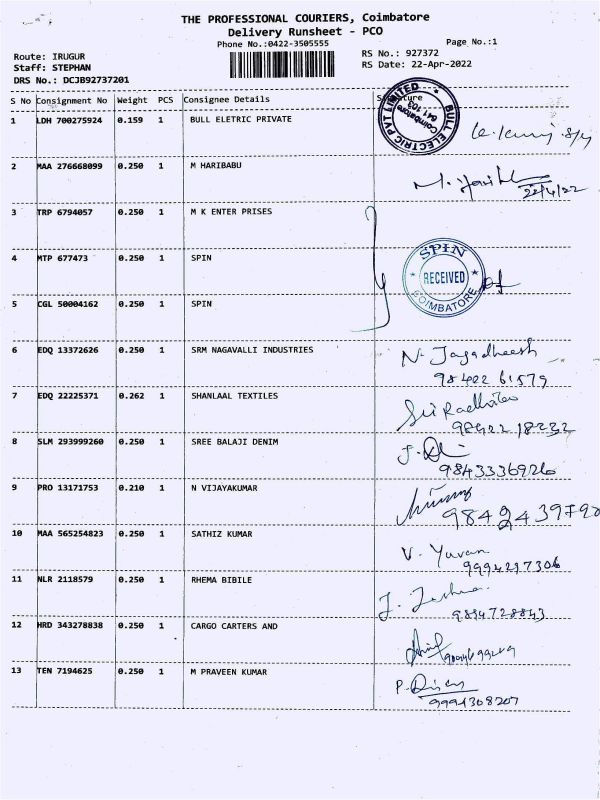 THE PROFESSIONAL COURIERS, Coimbatore
Delivery Runsheet - PCO
Phone No.:0422-3505555
Page No.:1
Route: IRUGUR
Staff: STEPHAN
DRS No.: DCJB92737201
RS No.: 927372
RS Date: 22-Apr-2022
S No Consignment No Weight PCS Consignee Details
1 LDH 700275924 0.159 1 BULL ELETRIC PRIVATE
BULL ELECTRIC PVT LIMITED
Coimbatore
641 103
2 MAA 276668099 0.250 1 M HARIBABU
22/4/22
3 TRP 6794057 0.250 1 M K ENTER PRISES
4 MTP 677473 0.250 1 SPIN
SPIN
RECEIVED
COIMBATORE
5 CGL 50004162 0.250 1 SPIN
6 EDQ 13372626 0.250 1 SRM NAGAVALLI INDUSTRIES
N. Jagadheesh
98422 61579
7 EDQ 22225371 0.262 1 SHANLAAL TEXTILES
98422 18232
8 SLM 293999260 0.250 1 SREE BALAJI DENIM
9843336926
9 PRO 13171753 0.210 1 N VIJAYAKUMAR
10 MAA 565254823 0.250 1 SATHIZ KUMAR
V. Yuvan
9994297306
11 NLR 2118579 0.250 1 RHEMA BIBILE
9894728843
12 HRD 343278838 0.250 1 CARGO CARTERS AND
13 TEN 7194625 0.250 1 M PRAVEEN KUMAR
9994308207